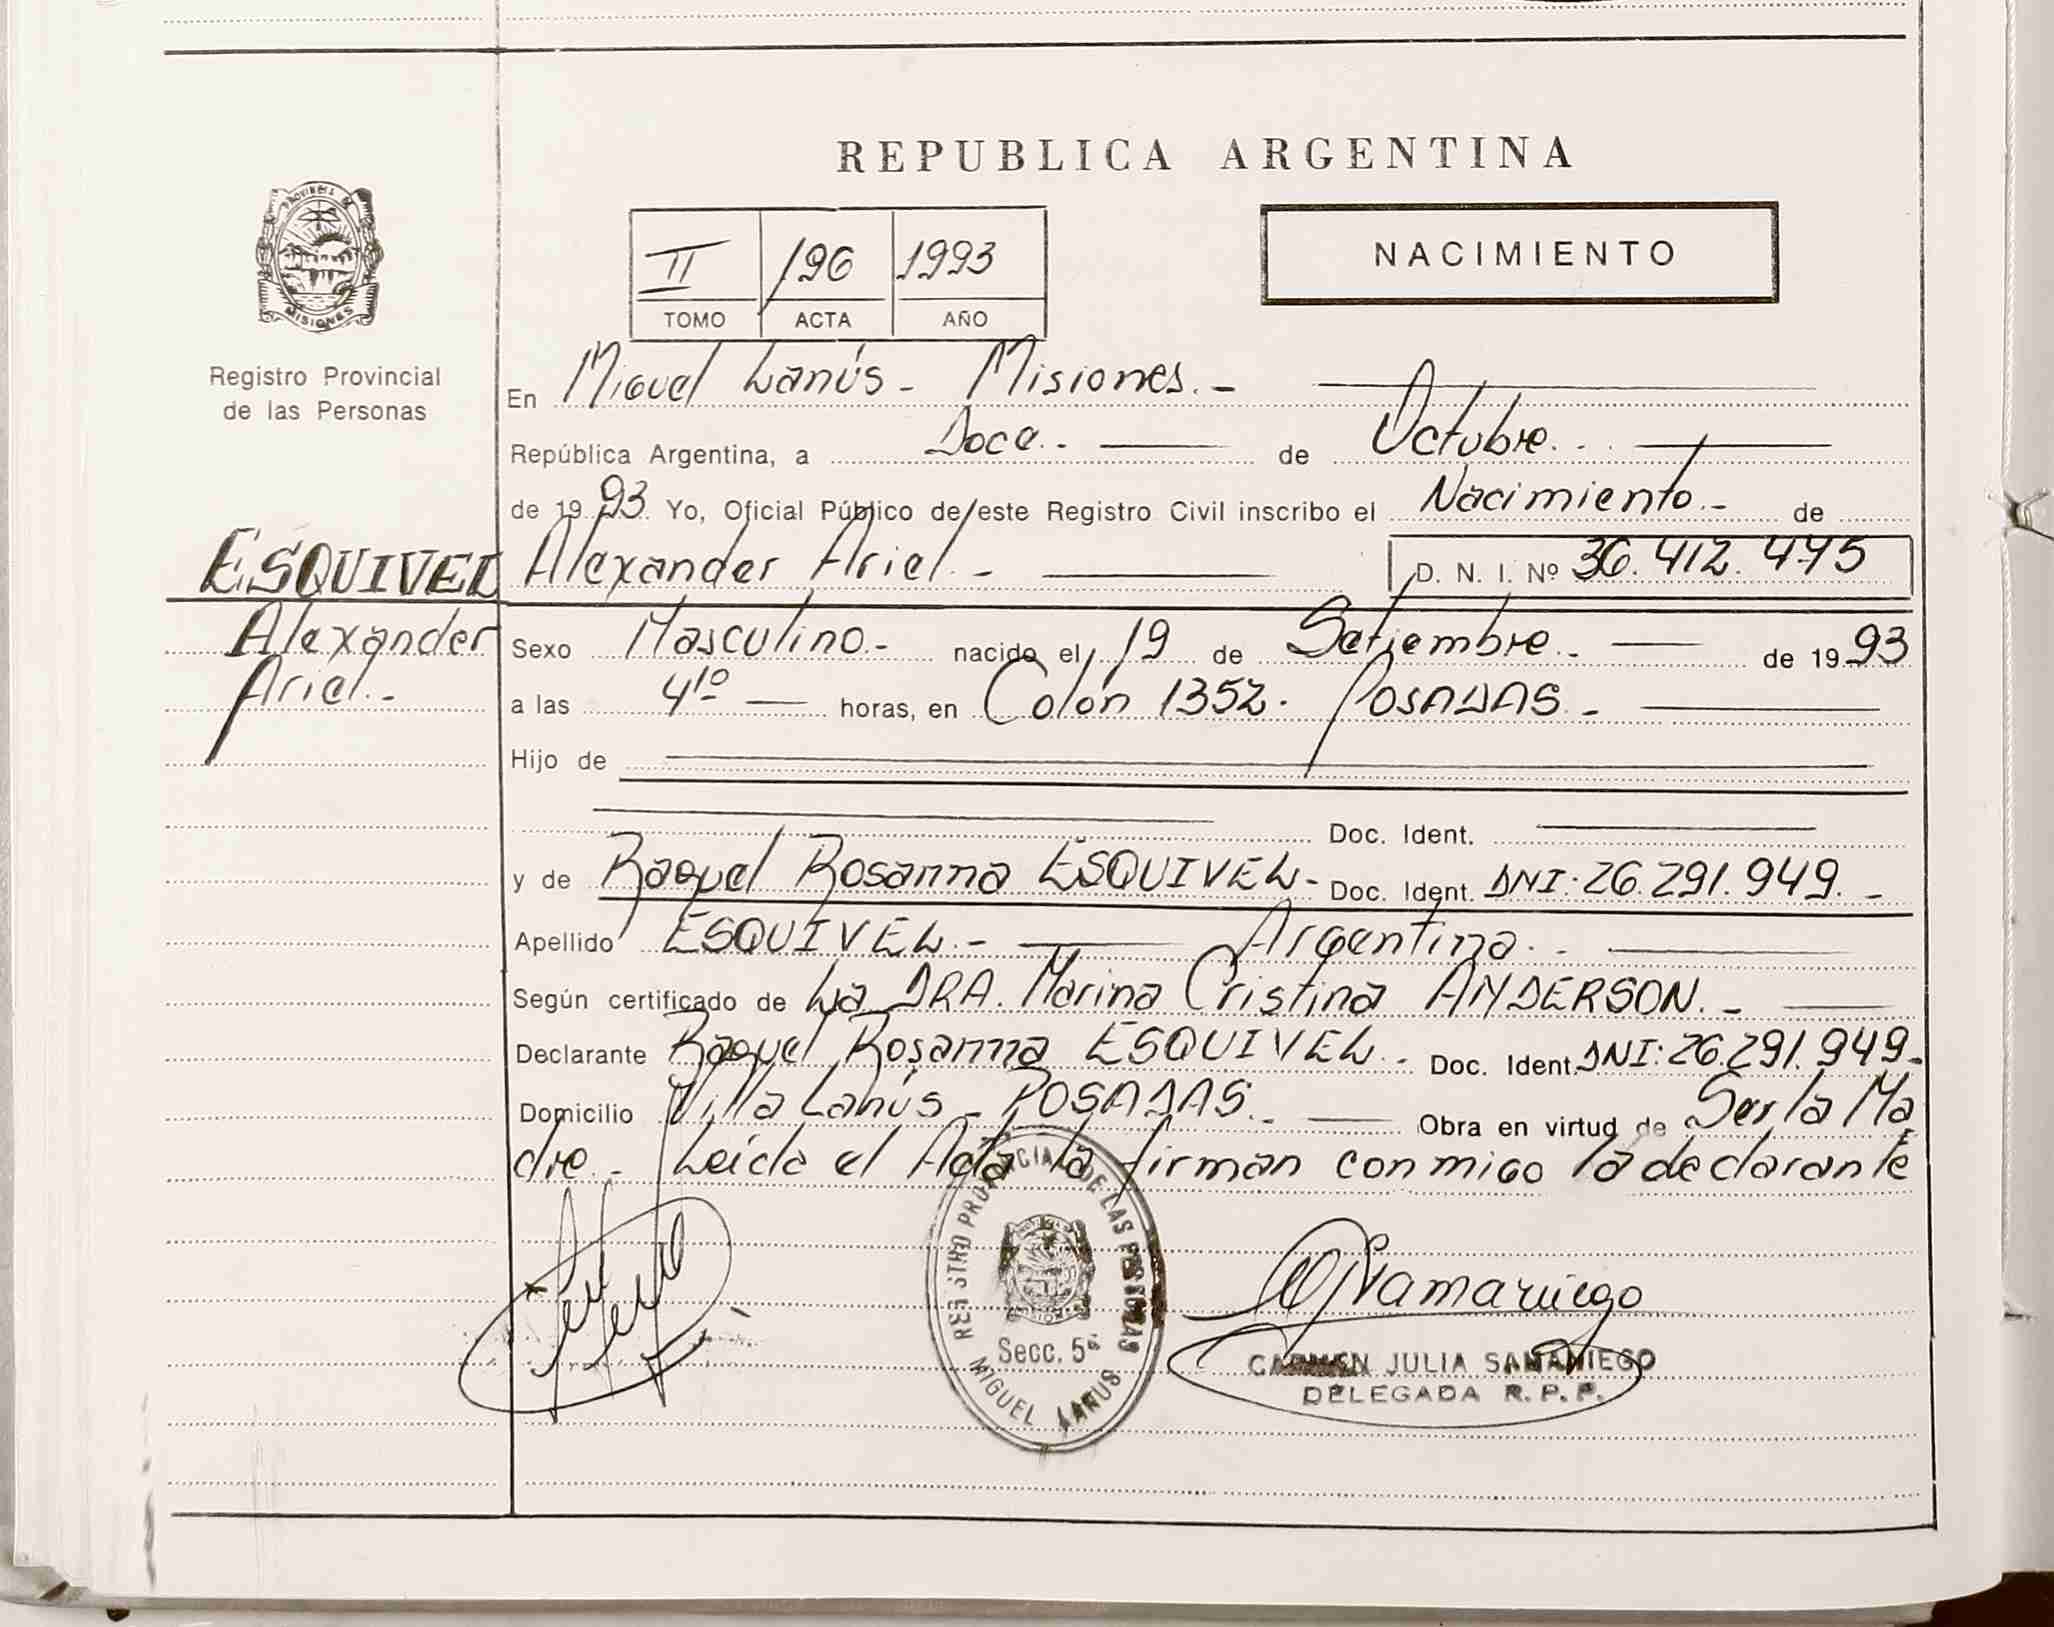 REPUBLICA ARGENTINA
PROVINCIA DE
MISIONES
Registro Provincial
de las Personas
II 196 1993
TOMO ACTA AÑO
NACIMIENTO
En Miguel Lanús - Misiones. -
República Argentina, a Doce. - de Octubre. -
de 1993. Yo, Oficial Público de este Registro Civil inscribo el Nacimiento. - de
ESQUIVEL Alexander Ariel. - D. N. I. Nº 36.412.475
Alexander
Ariel. -
Sexo Masculino. - nacido el 19 de Setiembre. - de 1993
a las 4¹⁰ horas, en Colón 1352. POSADAS. -
Hijo de
Doc. Ident.
y de Raquel Rosanna ESQUIVEL. - Doc. Ident. DNI: 26.291.949. -
Apellido ESQUIVEL. - Argentina. -
Según certificado de La DRA. Marina Cristina ANDERSON. -
Declarante Raquel Rosanna ESQUIVEL. - Doc. Ident. DNI: 26.291.949. -
Domicilio Villa Lanús - POSADAS. - Obra en virtud de Ser la Ma
dre. - Leída el Acta la firman conmigo la declarante
REGISTRO PROVINCIAL DE LAS PERSONAS
MISIONES
Secc. 5ª
MIGUEL LANUS
CARMEN JULIA SAMANIEGO
DELEGADA R. P. P.